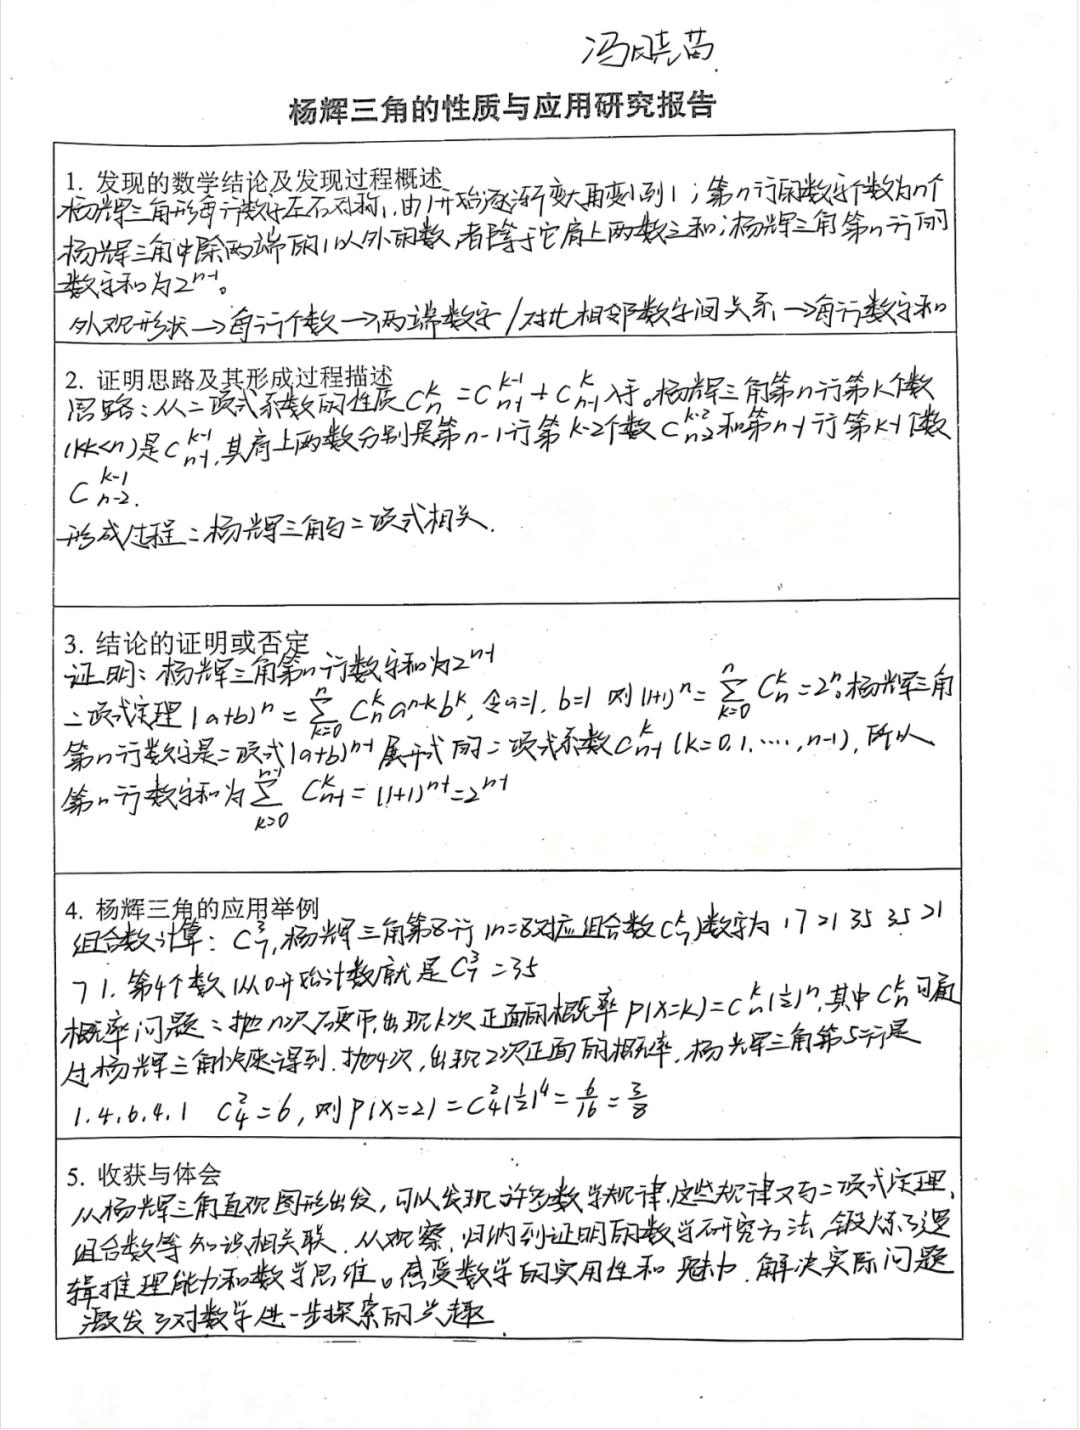 冯晓苗
杨辉三角的性质与应用研究报告
1. 发现的数学结论及发现过程概述
杨辉三角形每行数字左右对称,由1开始逐渐变大再变小到1；第n行的数字个数为n个
杨辉三角中除两端的1以外的数,都等于它肩上两数之和；杨辉三角第n行的
数字和为2^{n-1}。
外观形状→每行个数→两端数字/对比相邻数字间关系→每行数字和
2. 证明思路及其形成过程描述
思路：从二项式系数的性质C_n^k=C_{n-1}^{k-1}+C_{n-1}^k入手。杨辉三角第n行第k个数
(1<k<n)是C_{n-1}^{k-1},其肩上两数分别是第n-1行第k-2个数C_{n-2}^{k-2}和第n-1行第k-1个数
C_{n-2}^{k-1}.
形成过程：杨辉三角与二项式相关.
3. 结论的证明或否定
证明：杨辉三角第n行数字和为2^{n-1}
二项式定理(a+b)^n=∑_{k=0}^n C_n^k a^{n-k}b^k,令a=1,b=1 则(1+1)^n=∑_{k=0}^n C_n^k=2^n,杨辉三角
第n行数字是二项式(a+b)^{n-1}展开式的二项式系数C_{n-1}^k(k=0,1,…,n-1),所以
第n行数字和为∑_{k=0}^{n-1} C_{n-1}^k=(1+1)^{n-1}=2^{n-1}
4. 杨辉三角的应用举例
组合数计算：C_7^3,杨辉三角第8行(n=8对应组合数C_7^k)数字为 1 7 21 35 35 21
7 1. 第4个数(从0开始计数就是C_7^3=35
概率问题：抛n次硬币,出现k次正面的概率P(X=k)=C_n^k(1/2)^n,其中C_n^k可通
过杨辉三角快速得到.抛4次,出现2次正面的概率,杨辉三角第5行是
1.4.6.4.1 C_4^2=6,则P(X=2)=C_4^2(1/2)^4=6/16=3/8
5. 收获与体会
从杨辉三角直观图形出发,可以发现许多数学规律,这些规律又与二项式定理、
组合数等知识相关联.从观察、归纳到证明的数学研究方法,锻炼了逻
辑推理能力和数学思维。感受数学的实用性和魅力.解决实际问题
激发了对数学进一步探索的兴趣